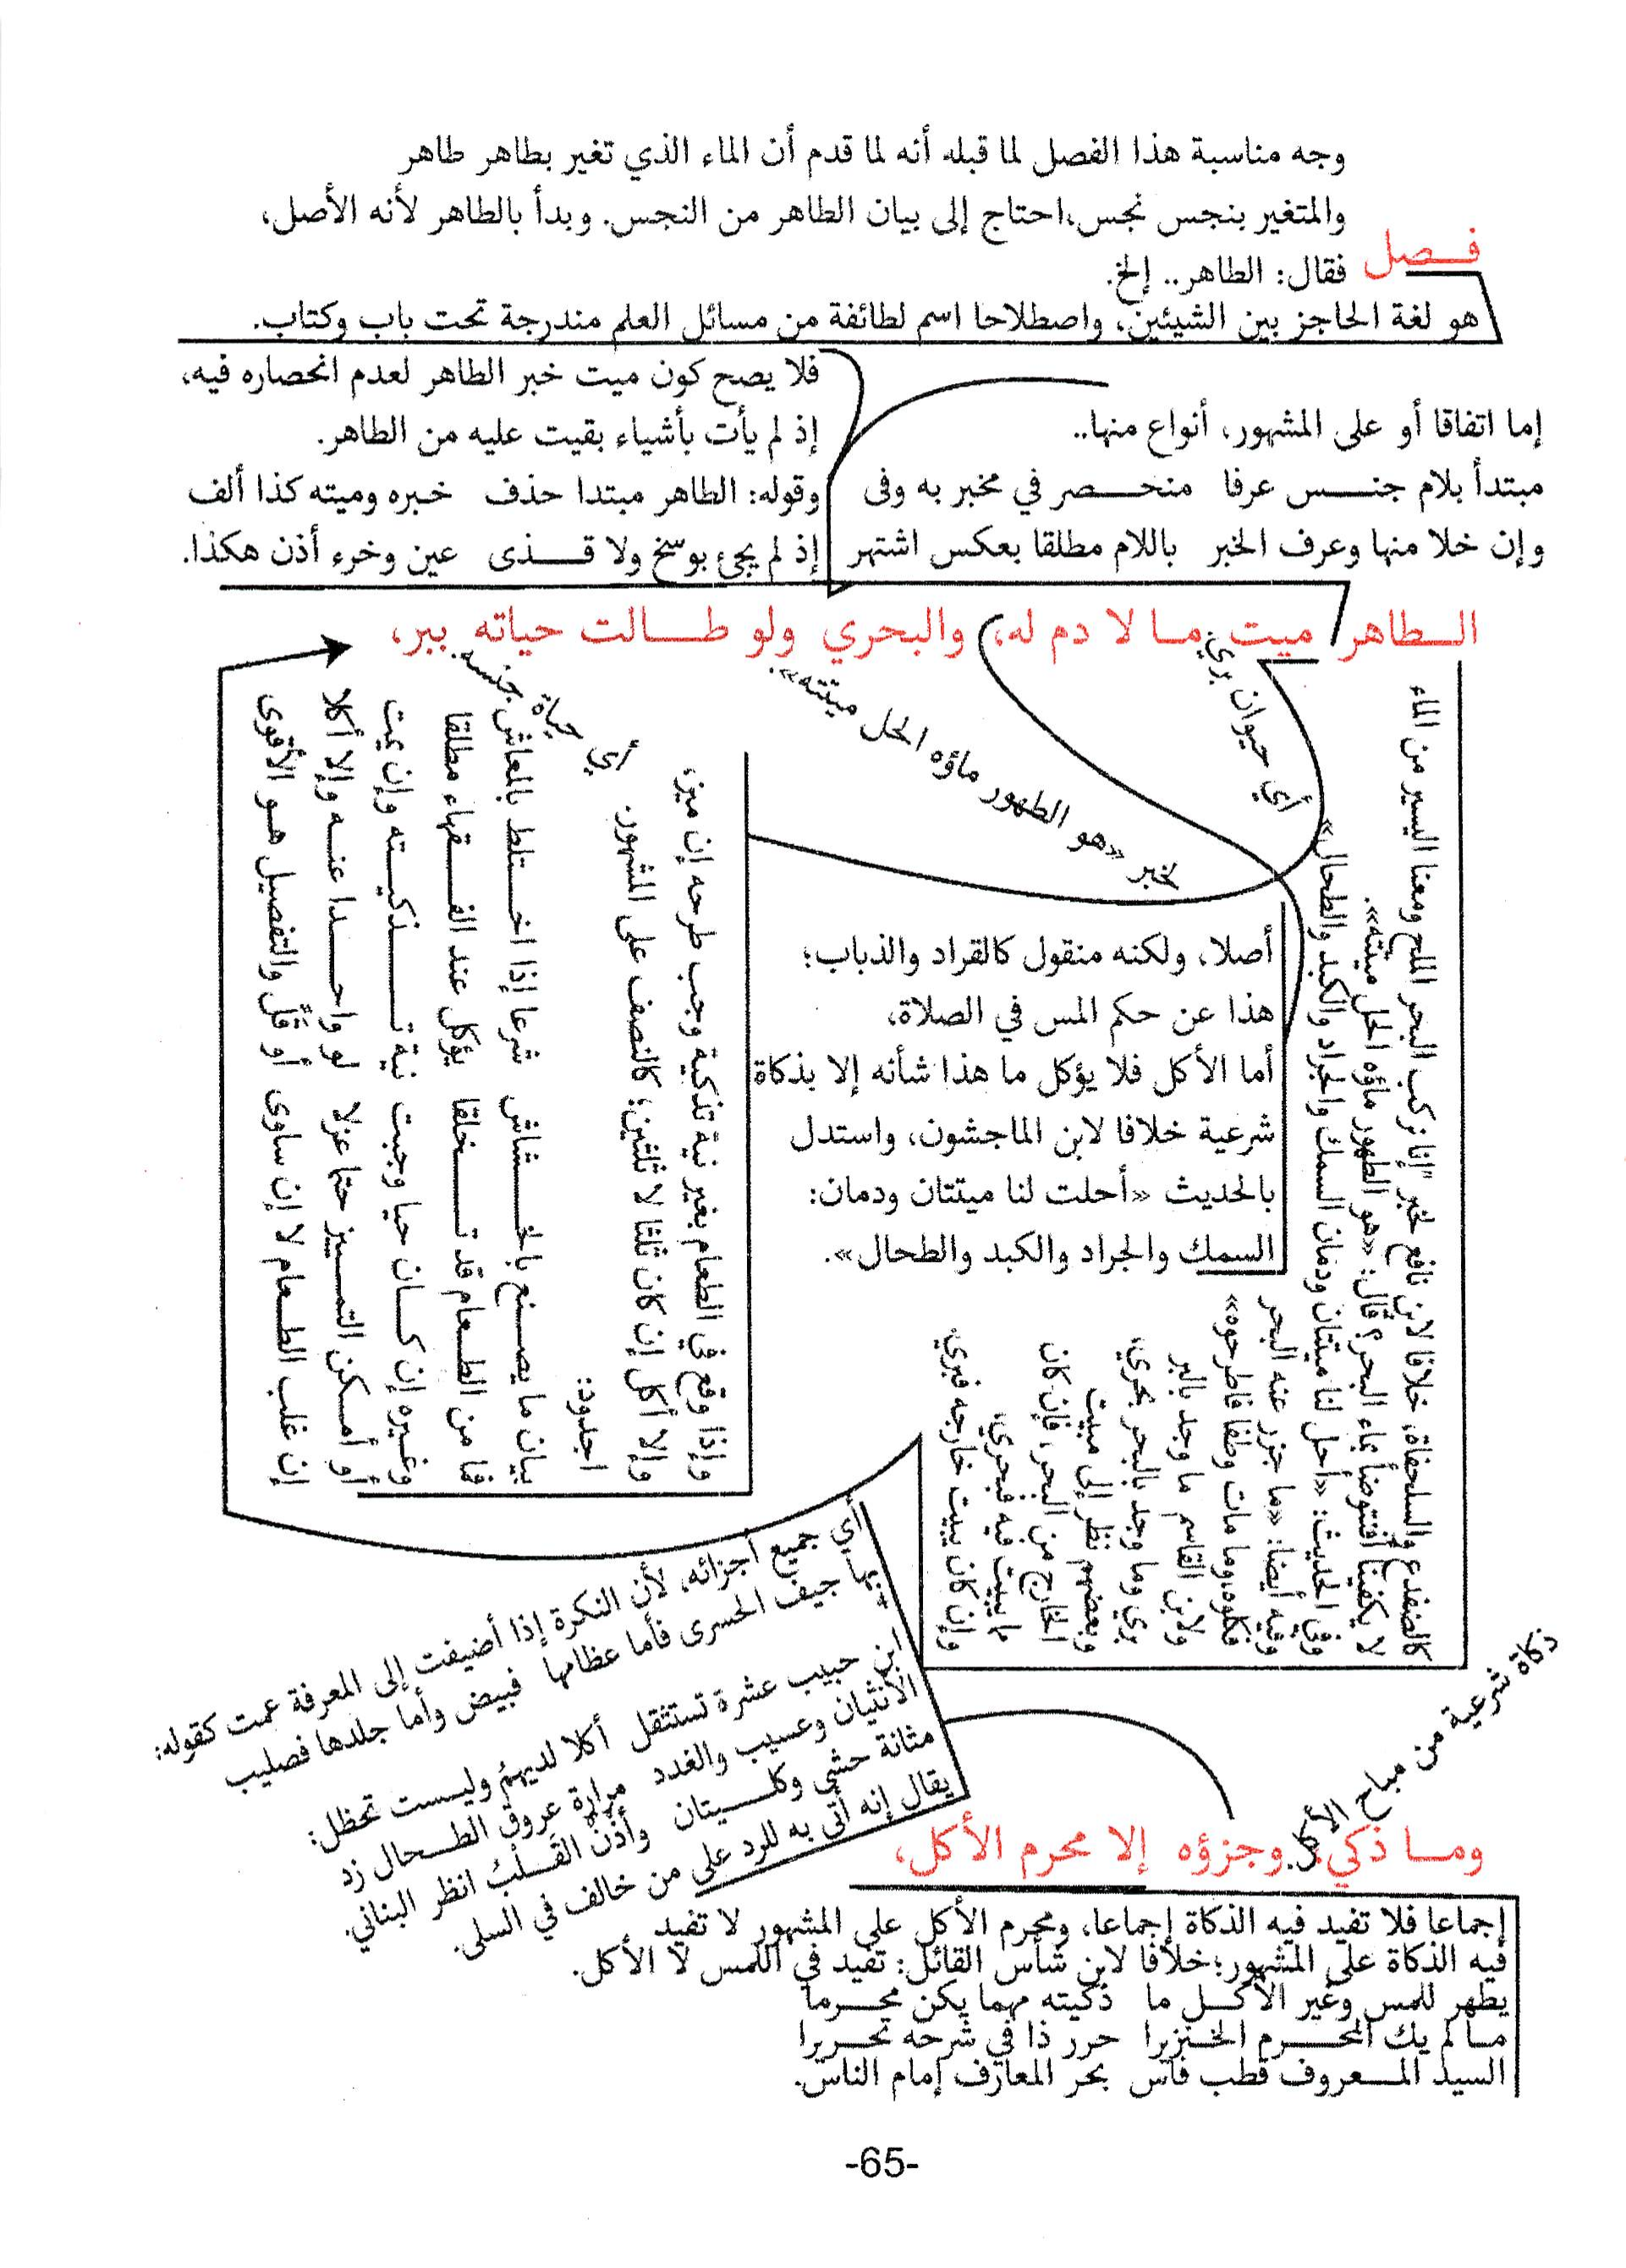 وجه مناسبة هذا الفصل لما قبله أنه لما قدم أن الماء الذي تغير بطاهر طاهر
والمتغير بنجس نجس،احتاج إلى بيان الطاهر من النجس. وبدأ بالطاهر لأنه الأصل،
فقال: الطاهر.. إلخ.
فـصل
هو لغة الحاجز بين الشيئين، واصطلاحا اسم لطائفة من مسائل العلم مندرجة تحت باب وكتاب.
إما اتفاقا أو على المشهور، أنواع منها..
مبتدأ بلام جنس عرفا منحصر في مخبر به وفى
وإن خلا منها وعرف الخبر باللام مطلقا بعكس اشتهر
فلا يصح كون ميت خبر الطاهر لعدم انحصاره فيه،
إذ لم يأت بأشياء بقيت عليه من الطاهر.
وقوله: الطاهر مبتدا حذف خبره وميته كذا ألف
إذ لم يجئ بوسخ ولا قذى عين وخرء أذن هكذا.
الطاهر ميت ما لا دم له، والبحري ولو طالت حياته ببر،
أي حيوان بري
لخبر «هو الطهور ماؤه الحل ميتته».
أي حياة جنسه.
كالضفدع والسلحفاة، خلافا لابن نافع لخبر "إنا نركب البحر الملح ومعنا اليسير من الماء
لا يكفينا أفنتوضأ بماء البحر؟ قال: «هو الطهور ماؤه الحل ميتته».
وفي الحديث: «أحل لنا ميتتان ودمان السمك والجراد والكبد والطحال»
وفيه أيضا: «ما جزر عنه البحر
فكلوه،وما مات وطفا فاطرحوه»
ولابن القاسم ما وجد بالبر
بري وما وجد بالبحر بحري،
وبعضهم نظر إلى مبيت
الخارج من البحر، فإن كان
مما يبيت فيه فبحري،
وإن كان يبيت خارجه فبري.
أصلا، ولكنه منقول كالقراد والذباب؛
هذا عن حكم المس في الصلاة،
أما الأكل فلا يؤكل ما هذا شأنه إلا بذكاة
شرعية خلافا لابن الماجشون، واستدل
بالحديث «أحلت لنا ميتتان ودمان:
السمك والجراد والكبد والطحال».
وإذا وقع في الطعام بغير نية تذكية وجب طرحه إن ميز،
وإلا أكل إن كان ثلثا لا ثلثين؛ كالنصف على المشهور.
اجدود:
بيان ما يصنع بالخشاش شرعا إذا اختلط بالمعاش
فما من الطعام قد تخلقا يؤكل عند الفقهاء مطلقا
وغيره إن كان حيا وجبت نية تذكيته وإن يمت
أو أمكن التمييز حتما عزلا لو واحدا عنه وإلا أكلا
إن غلب الطعام لا إن ساوى أو قل والتفصيل هو الأقوى
أي بجميع أجزائه، لأن النكرة إذا أضيفت إلى المعرفة عمت كقوله:
جيف الحسرى فأما عظامها فبيض وأما جلدها فصليب
ابن حبيب عشرة تستثقل أكلا لديهم وليست تحظل:
الأنثيان وعسيب والغدد مرارة عروق الطحال زد
مثانة حشي وكليتان وأذن القلب انظر البناني.
يقال إنه أتى به للرد على من خالف في السلى.
ذكاة شرعية من مباح الأكل.
وما ذكي، وجزؤه إلا محرم الأكل،
إجماعا فلا تفيد فيه الذكاة إجماعا، ومحرم الأكل على المشهور لا تفيد
فيه الذكاة على المشهور؛خلافا لابن شأس القائل: تفيد في اللمس لا الأكل.
يطهر للمس وغير الأكل ما ذكيته مهما يكن محرما
ما لم يك المحرم الخنزيرا حرر ذا في شرحه تحريرا
السيد المعروف قطب فاس بحر المعارف إمام الناس.
-65-